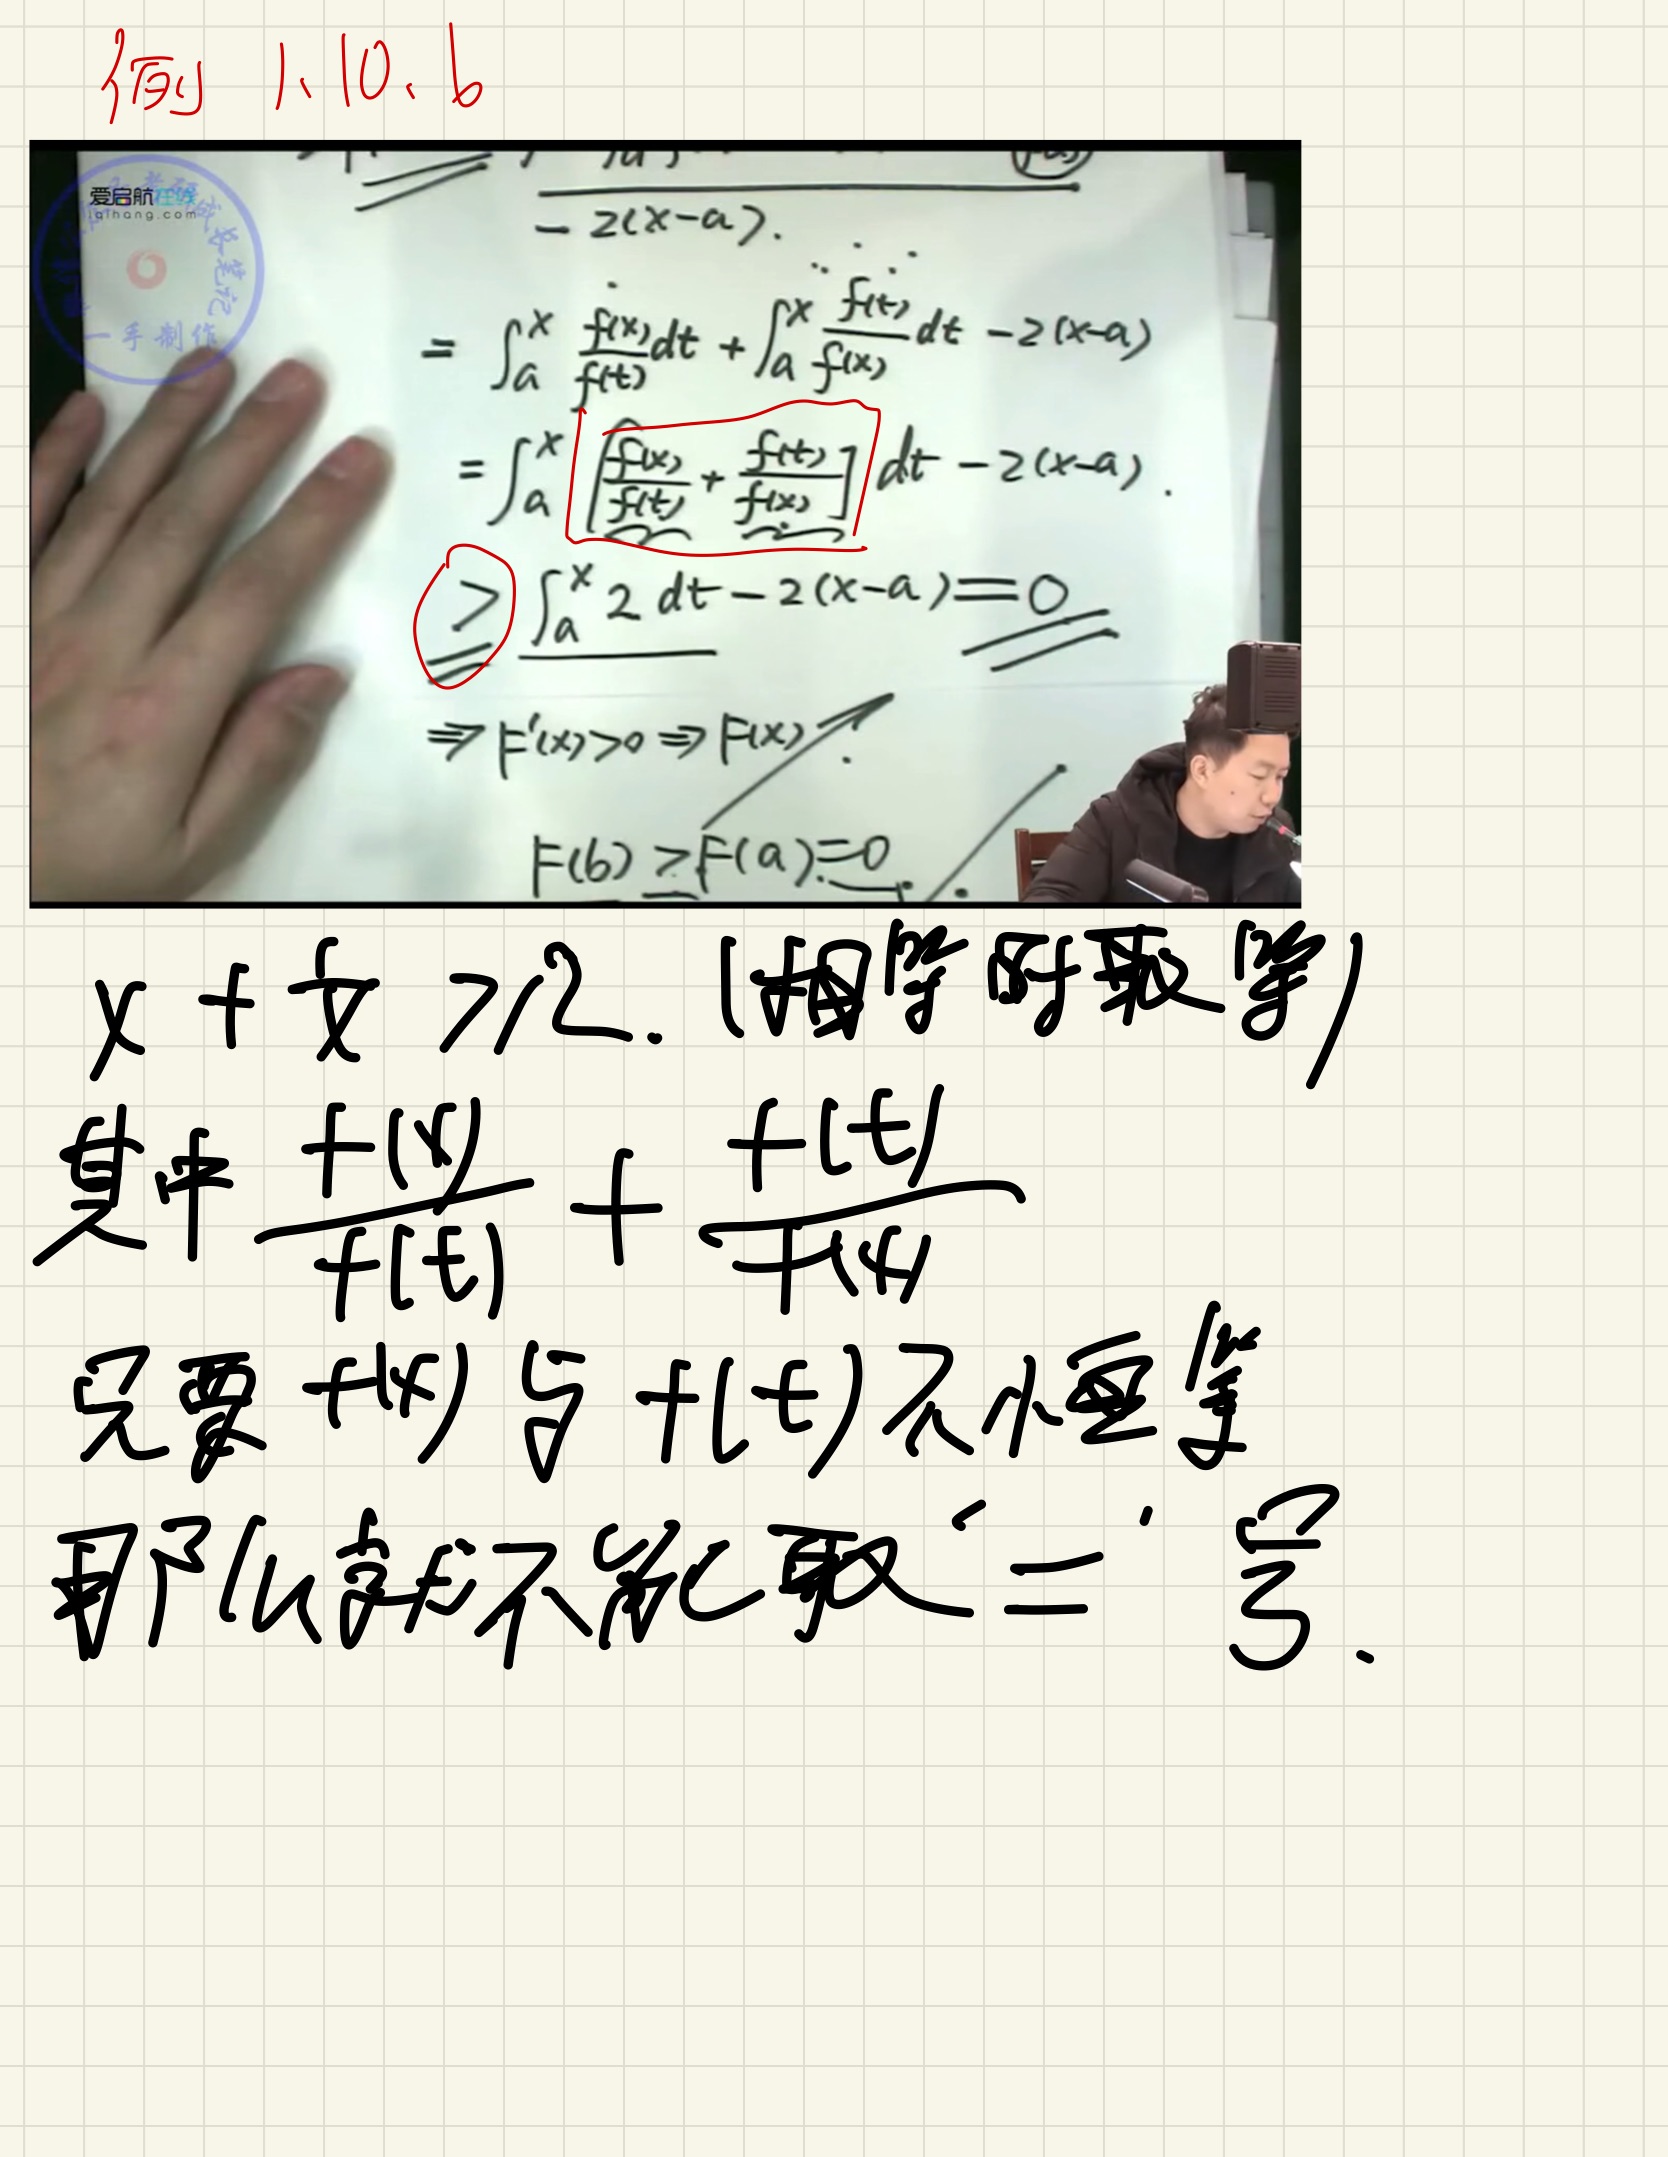 例 1、10、6
爱启航在线
iqihang.com
一手制作
- 2(x-a).
= ∫ₐˣ f(x)/f(t) dt + ∫ₐˣ f(t)/f(x) dt - 2(x-a)
= ∫ₐˣ [f(x)/f(t) + f(t)/f(x)] dt - 2(x-a).
> ∫ₐˣ 2 dt - 2(x-a) = 0
⇒ F'(x)>0 ⇒ F(x) ↗.
F(b) ≥ F(a) = 0
x + 1/x ≥ 2. (相等时取等)
其中 f(x)/f(t) + f(t)/f(x)
只要 f(x) 与 f(t) 不恒等
那么就不能取 '=' 号.